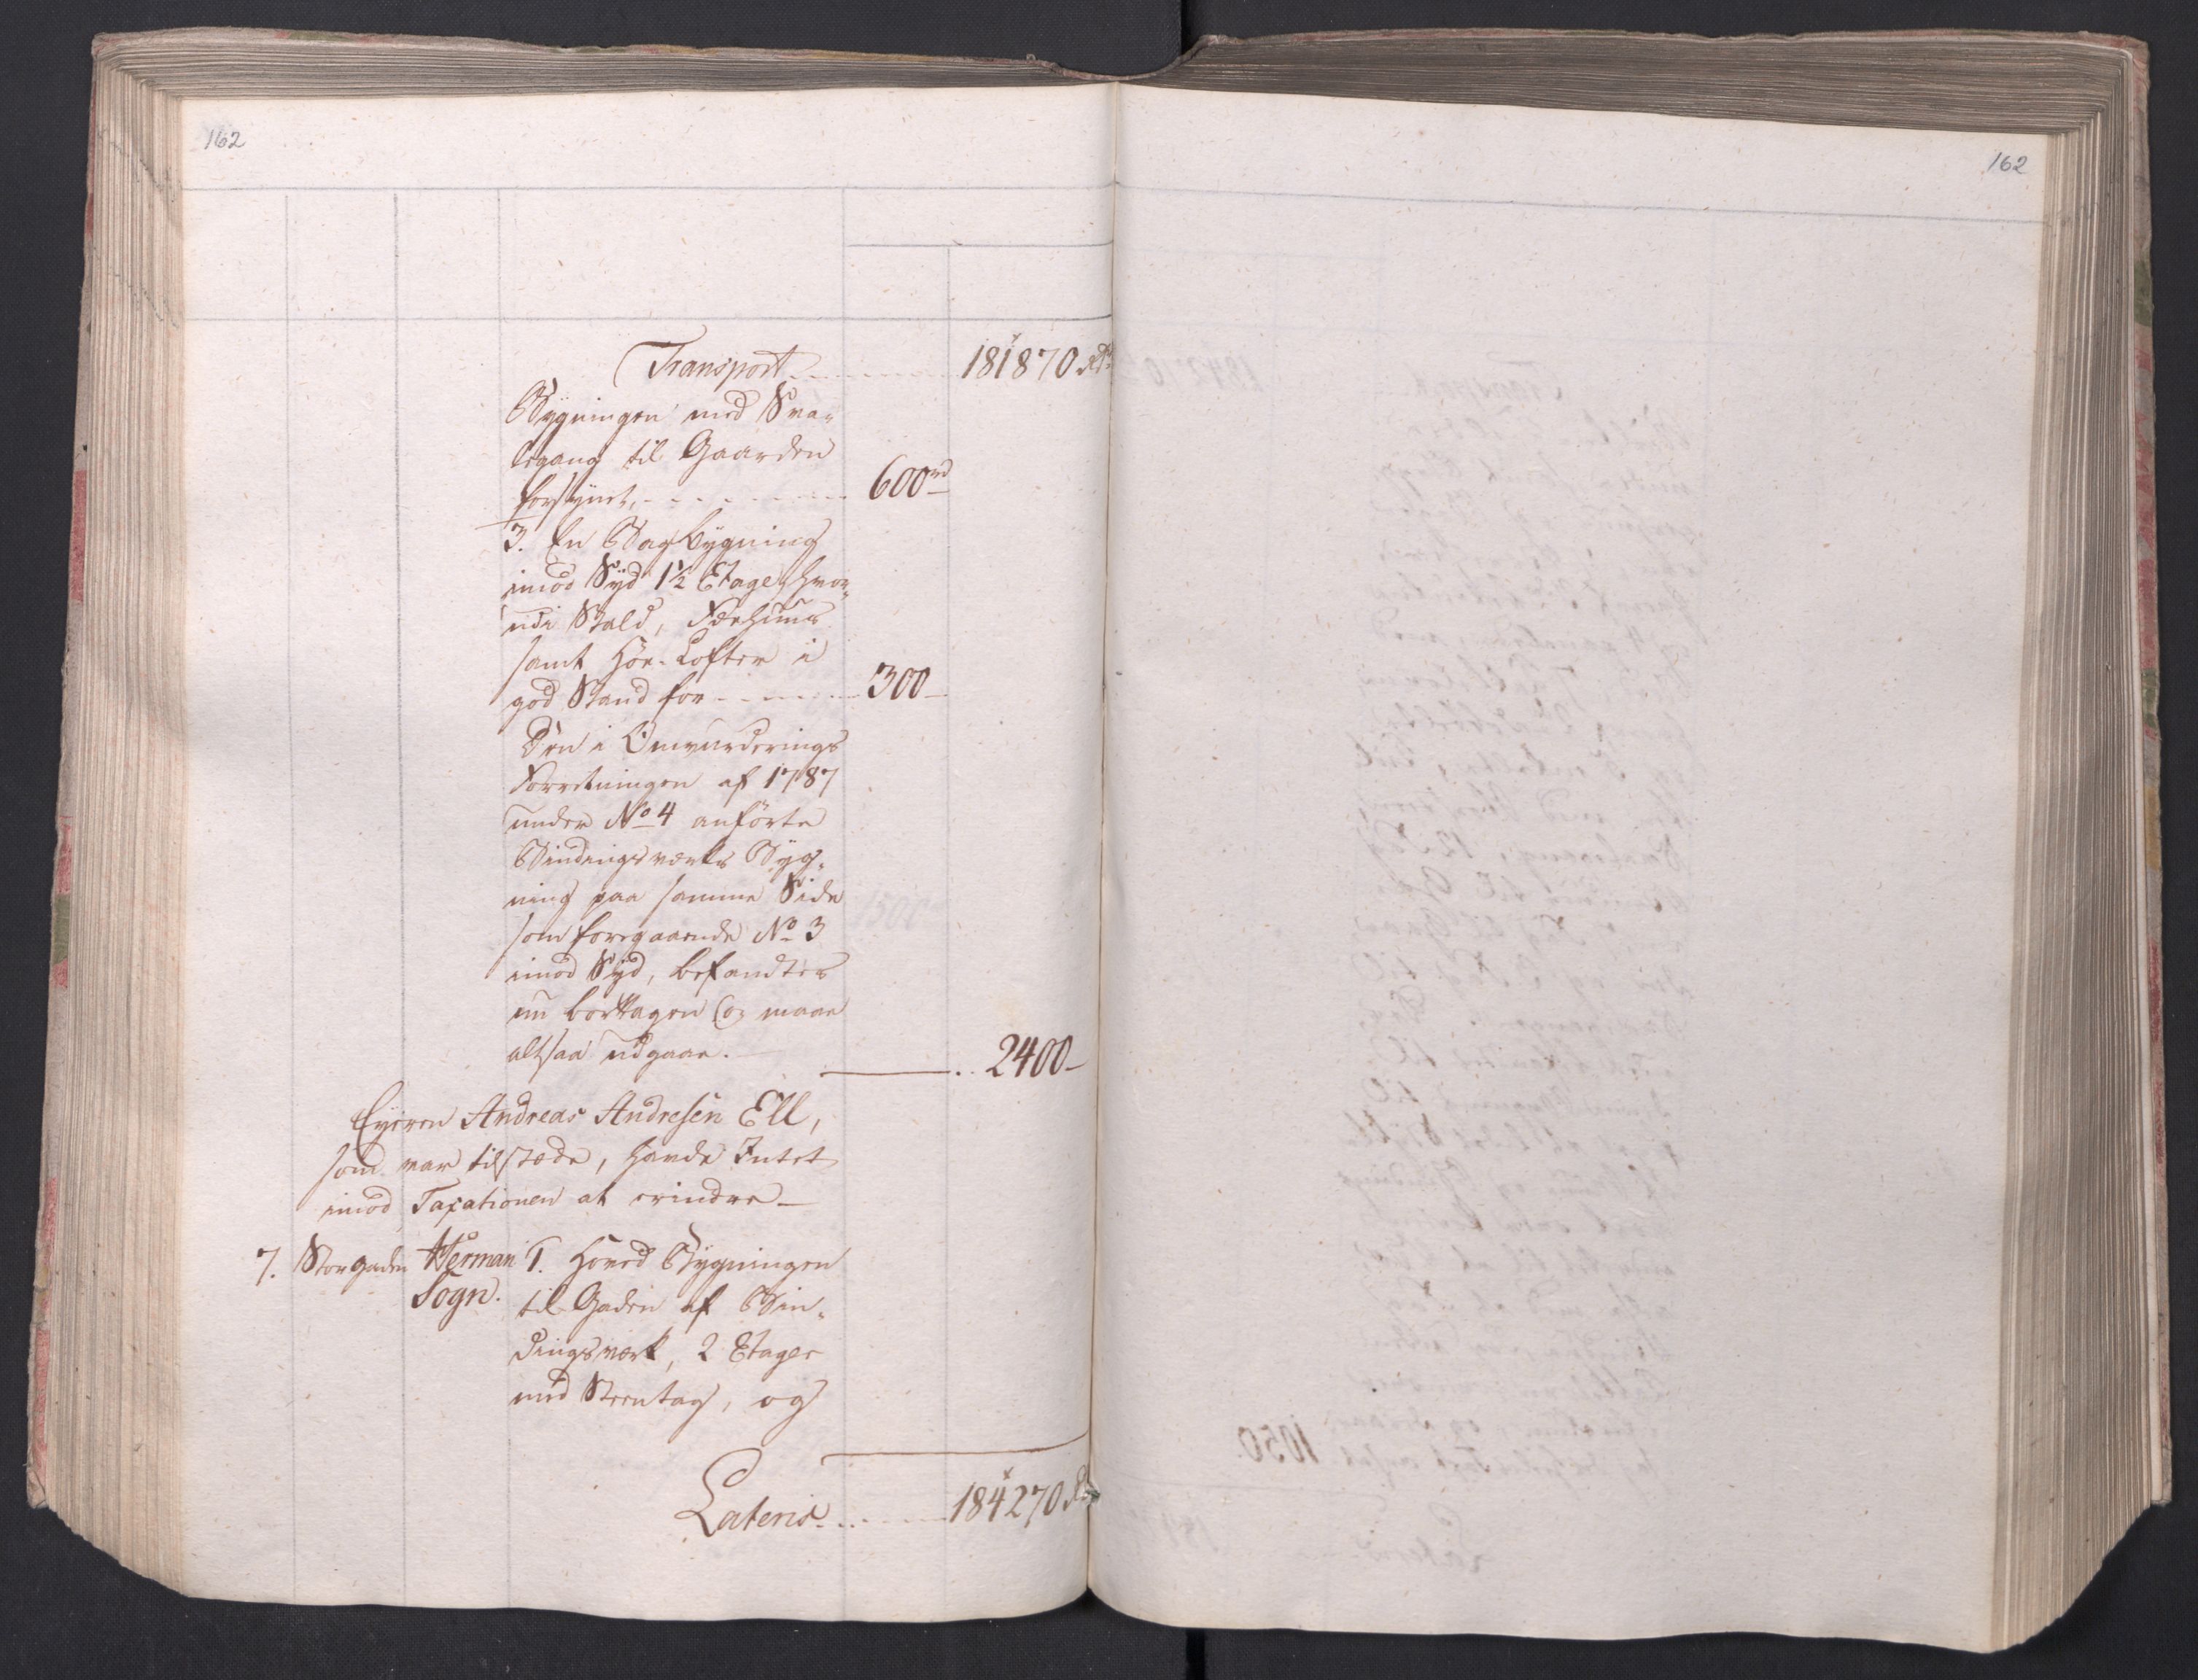 162
162
Transport 181870 Rd
Bygningen med Sva-
legang til Gaarden
forsÿnet, 600 rd
3. En Bagbygning
imod Sÿd 1½ Etage, hvor-
udi Stald, Fæehuus
samt Höe-Lofter i
god Stand for 300
Den i Omvurderings
Forretningen af 1787
under No 4 anförte
Bindingsværks Byg-
ning paa samme Side
som foregaaende No 3
imod Sÿd, befandtes
nu borttagen og maae
altsaa udgaae.
2400
Eyeren Andreas Andresen Ell,
som var tilstæde, havde Intet
imod Taxationen at erindre
7. Storgaden Herman 1. Hoved Bygningen
Sogn. til Gaden af Bin-
dingsværk, 2 Etager
med Steentag, og
Lateris 184270 Rd